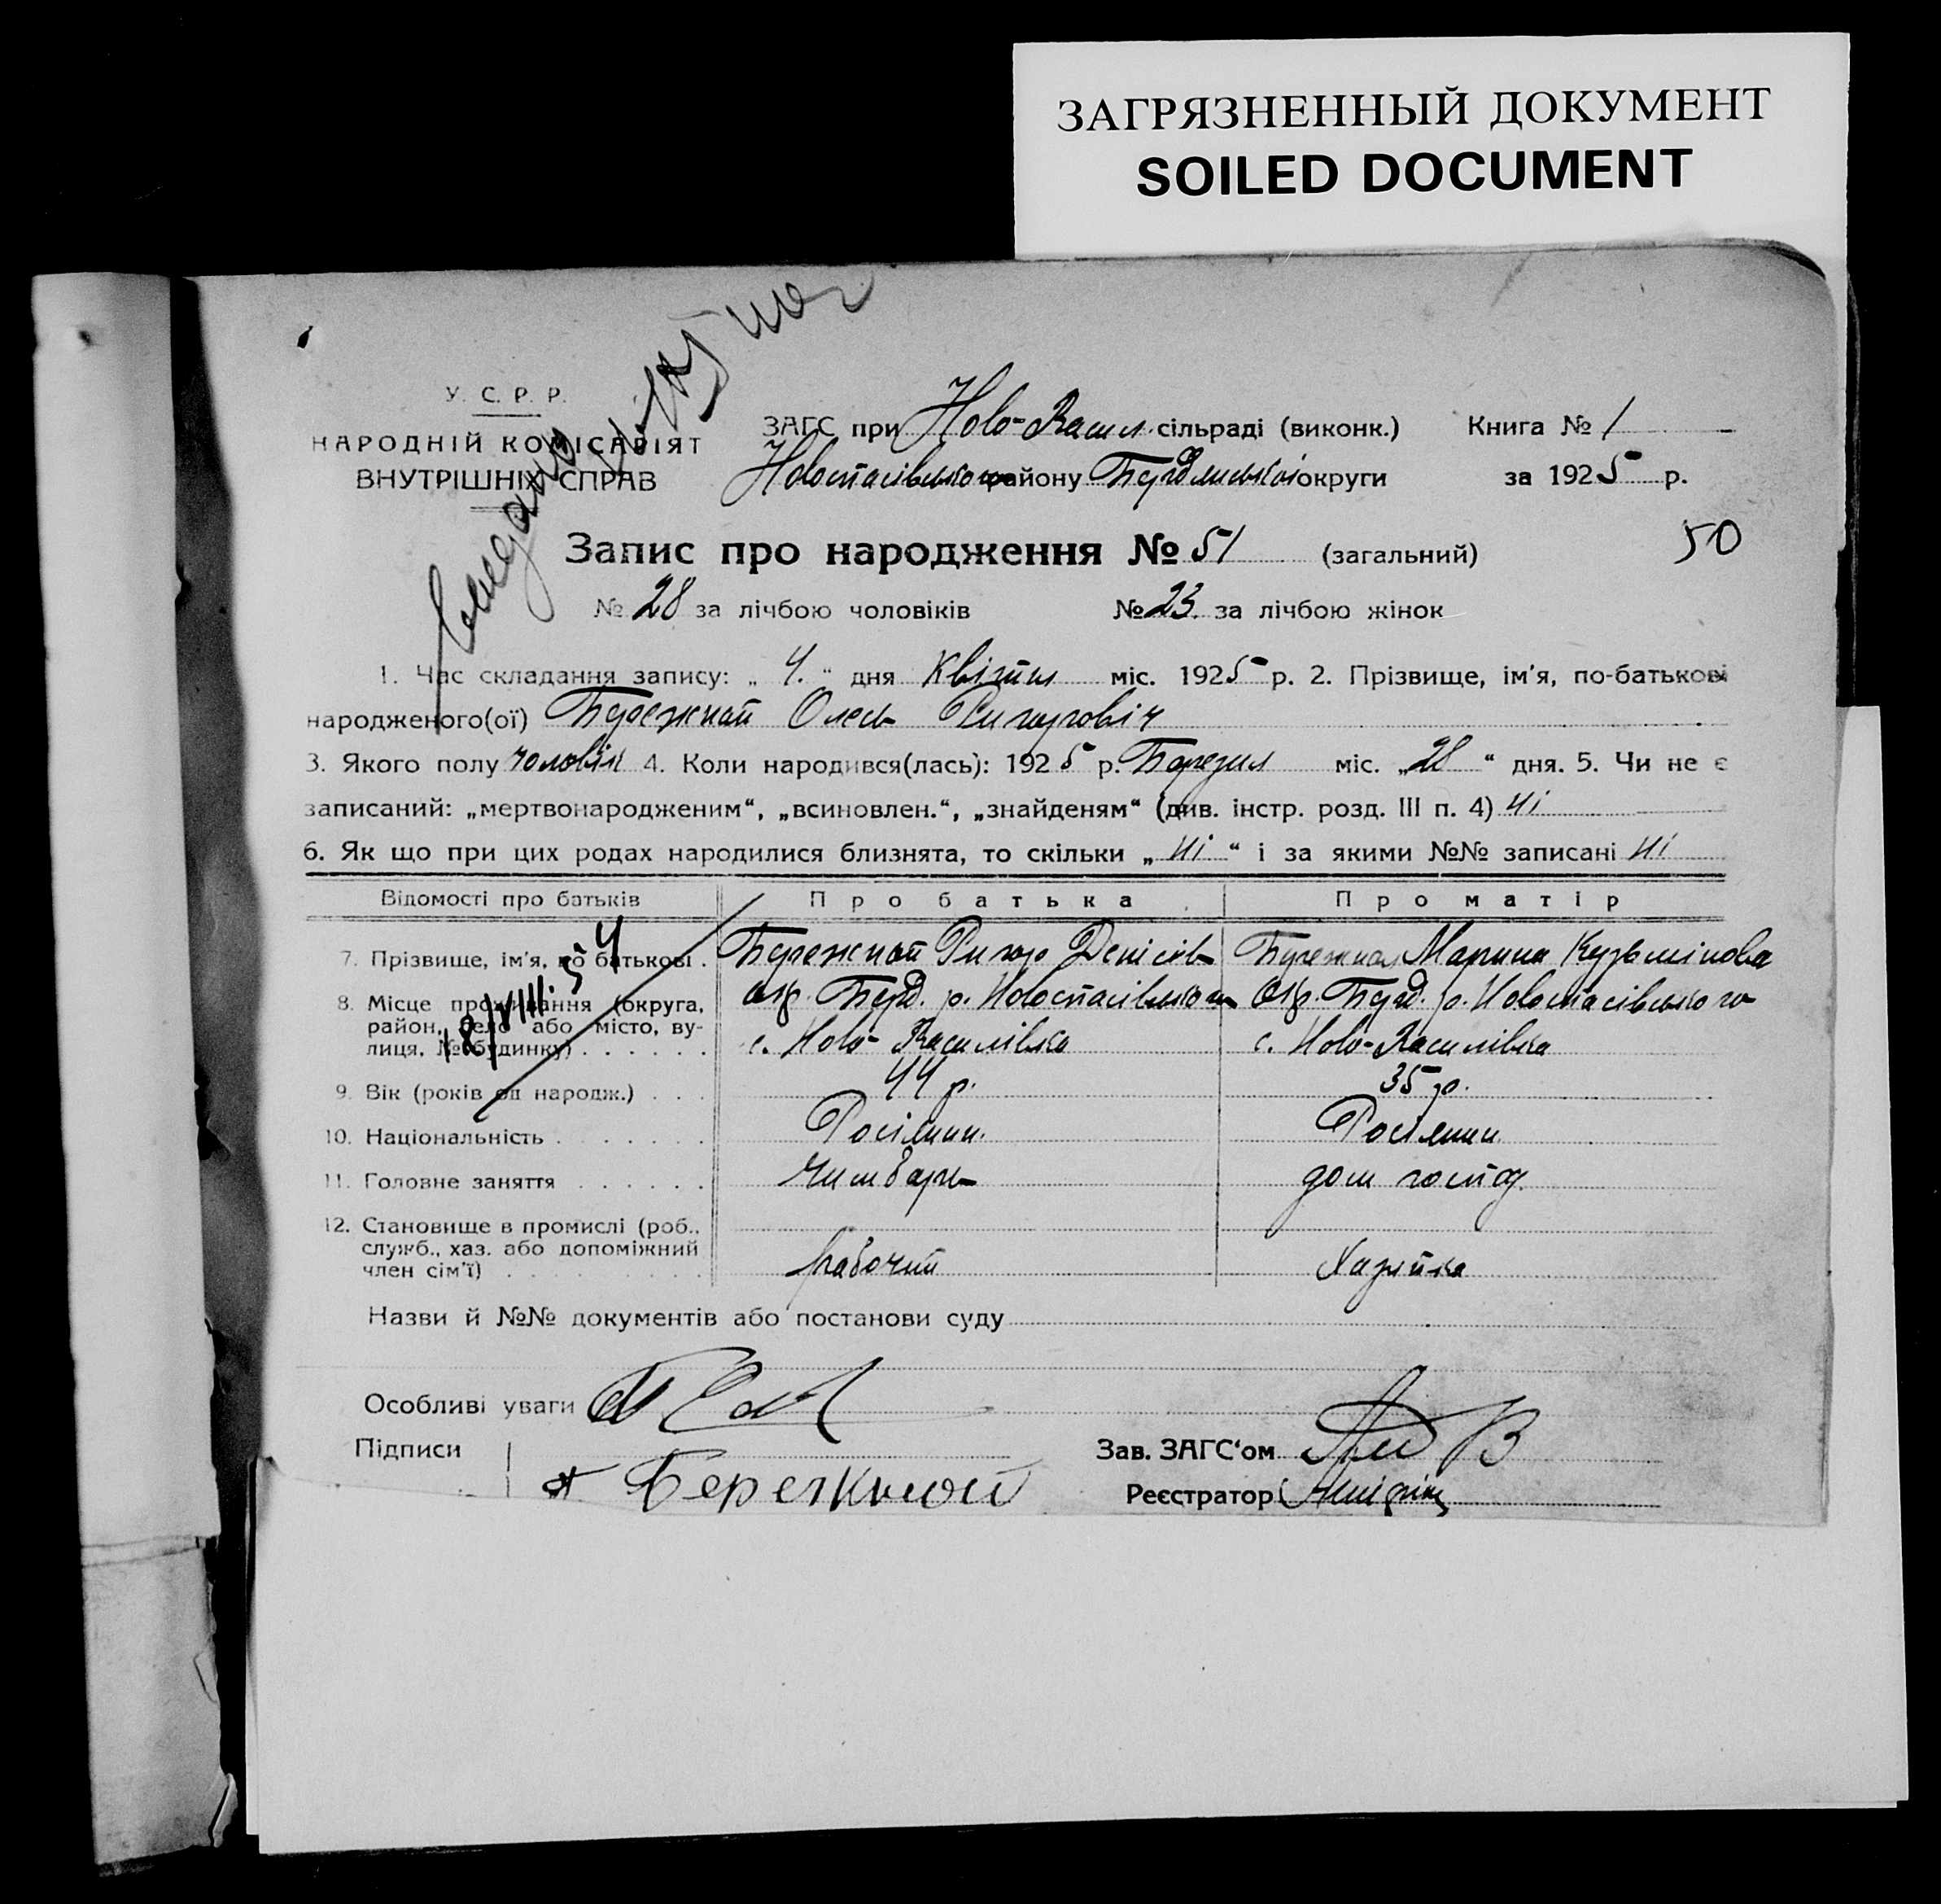 ЗАГРЯЗНЕННЫЙ ДОКУМЕНТ
SOILED DOCUMENT
У. С. Р. Р.
НАРОДНІЙ КОМІСАРІЯТ
ВНУТРІШНІХ СПРАВ
ЗАГС при Ново-Васил. сільраді (виконк.) Книга № 1
Новоспасівського району Бердянської округи за 1925 р.
Запис про народження № 51 (загальний) 50
№ 28 за лічбою чоловіків № 23 за лічбою жінок
1. Час складання запису: „ 4. “ дня Квітня міс. 1925 р. 2. Прізвище, ім'я, по-батькові
народженого(ої) Бережной Олесь Григорович
3. Якого полу чоловік 4. Коли народився(лась): 1925 р. Березня міс. „28“ дня. 5. Чи не є
записаний: „мертвонародженим“, „всиновлен.“, „знайденям“ (див. інстр. розд. III п. 4) ні
6. Як що при цих родах народилися близнята, то скільки „ ні “ і за якими №№ записані ні
Відомості про батьків Про батька Про матір
7. Прізвище, ім'я, по батькові . Бережной Григор Денісів Бережная Марина Кузьмінова
8. Місце проживання (округа, окр. Берд. р. Новоспасівського окр. Берд. р. Новоспасівського
район, село або місто, ву-
лиця, № будинку) . . . . . . с. Ново-Василівка с. Ново-Василівка
18/VIII. 54
9. Вік (років од народж.) . . . 44 р. 35 р.
10. Національність . . . . . . . Росіянин. Росіянин
11. Головне заняття . . . . . . Чимбарь дом господ.
12. Становище в промислі (роб.,
служб., хаз. або допоміжний
член сім'ї) . . . . . . . . . рабочий Хазяйка
Назви й №№ документів або постанови суду
Особливі уваги
Підписи Зав. ЗАГС'ом
Бережной Реєстратор